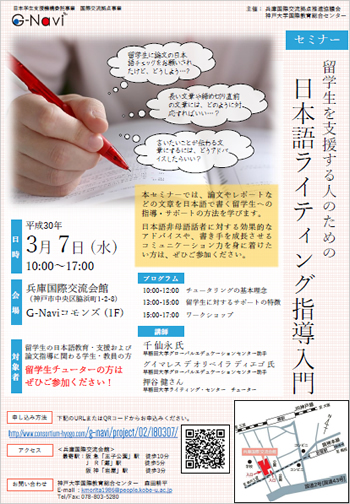 日本学生支援機構委託事業　国際交流拠点事業
G-Navi
主催：兵庫国際交流拠点推進協議会
神戸大学国際教育総合センター
セミナー
留学生を支援する人のための
日本語ライティング指導入門
留学生に論文の日本
語チェックをお願いされ
たけど、どうしよう…？
長い文章や締め切り直前
の文章には、どのように対
応すればいい…？
言いたいことが伝わる文
章にするには、どうアドバ
イスしたらいい？
本セミナーでは、論文やレポートなど
の文章を日本語で書く留学生への
指導・サポートの方法を学びます。
日本語非母語話者に対する効果的な
アドバイスや、書き手を成長させる
コミュニケーション力を身に着けた
い方は、ぜひご参加ください。
日時
平成30年
3月7日（水）
10:00～17:00
会場
兵庫国際交流会館
（神戸市中央区脇浜町1-2-8）
G-Naviコモンズ（1F）
対象者
留学生の日本語教育・支援および
論文指導に関わる学生・教員の方
留学生チューターの方は
ぜひご参加ください！
プログラム
10:00-12:00　チュータリングの基本理念
13:00-15:00　留学生に対するサポートの特徴
15:00-17:00　ワークショップ
講師
千仙永 氏
早稲田大学グローバルエデュケーションセンター助手
デイマレス デオリベイラ ディエゴ 氏
早稲田大学グローバルエデュケーションセンター助手
押谷 健さん
早稲田大学ライティング・センター　チューター
申し込み方法
下記のURLまたはQRコードからお申込みください。
http://www.consortium-hyogo.com/g-navi/project/02/IB0307/
アクセス
＜兵庫国際交流会館＞
最寄駅：阪急「王子公園」駅　徒歩10分
JR「灘」駅　徒歩5分
阪神「岩屋」駅　徒歩3分
お問い合わせ
神戸大学国際教育総合センター　森田耕平
E-mail：kmorita1986@people.kobe-u.ac.jp
Tel/Fax: 078-803-5280
兵庫国際交流会館
入口
国道2号（国道43号）